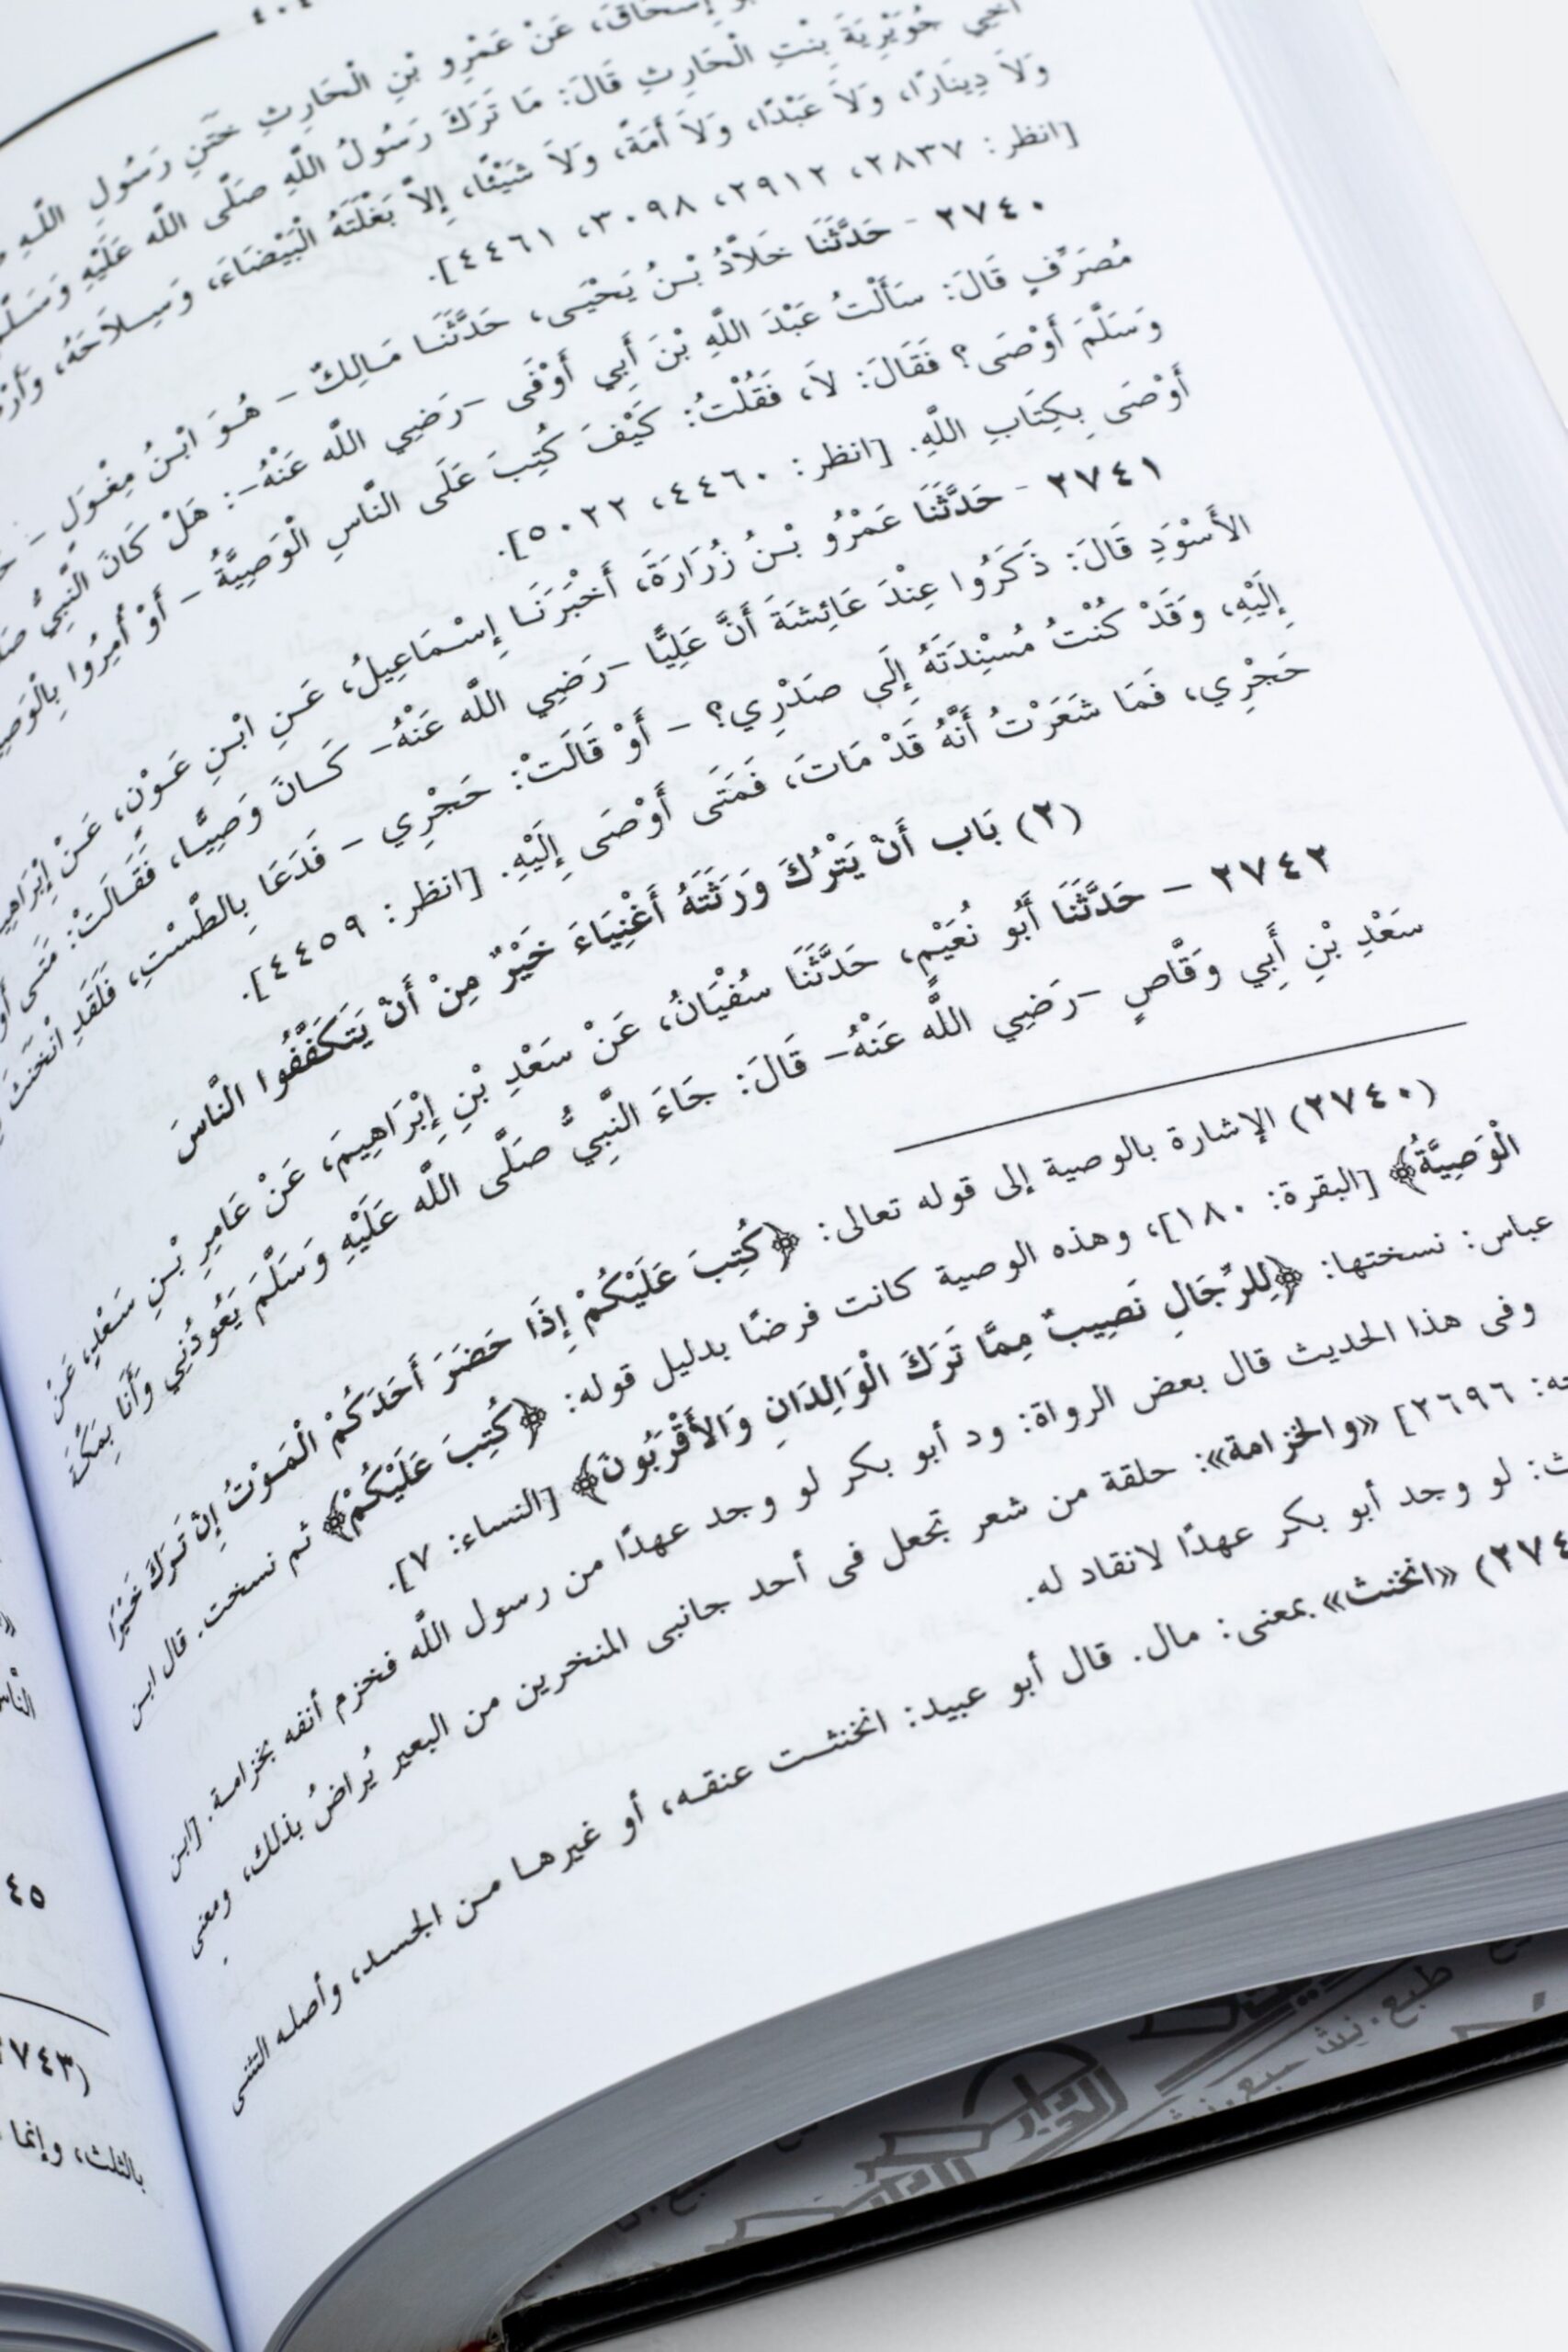 ٤٠٤
إِسْحَاقَ، عَنْ عَمْرِو بْنِ الْحَارِثِ خَتَنِ رَسُولِ اللَّهِ
أَخِي جُوَيْرِيَةَ بِنْتِ الْحَارِثِ قَالَ: مَا تَرَكَ رَسُولُ اللَّهِ صَلَّى اللَّه عَلَيْهِ وَسَلَّمَ
وَلاَ دِينَارًا، وَلاَ عَبْدًا، وَلاَ أَمَةً، وَلاَ شَيْئًا، إِلاَّ بَغْلَتَهُ الْبَيْضَاءَ، وَسِلاَحَهُ،
[انظر: ٢٨٣٧، ٢٩١٢، ٣٠٩٨، ٤٤٦١].
٢٧٤٠ - حَدَّثَنَا خَلاَّدُ بْنُ يَحْيَى، حَدَّثَنَا مَالِكٌ - هُوَ ابْنُ مِغْوَلٍ -
مُصَرِّفٍ قَالَ: سَأَلْتُ عَبْدَ اللَّهِ بْنَ أَبِي أَوْفَى -رَضِيَ اللَّه عَنْهُ-: هَلْ كَانَ النَّبِيُّ
وَسَلَّمَ أَوْصَى؟ فَقَالَ: لاَ، فَقُلْتُ: كَيْفَ كُتِبَ عَلَى النَّاسِ الْوَصِيَّةُ - أَوْ أُمِرُوا
أَوْصَى بِكِتَابِ اللَّهِ. [انظر: ٤٤٦٠، ٥٠٢٢].
٢٧٤١ - حَدَّثَنَا عَمْرُو بْنُ زُرَارَةَ، أَخْبَرَنَا إِسْمَاعِيلُ، عَنِ ابْنِ عَوْنٍ، عَنْ إِبْرَاهِيمَ
الأَسْوَدِ قَالَ: ذَكَرُوا عِنْدَ عَائِشَةَ أَنَّ عَلِيًّا -رَضِيَ اللَّه عَنْهُ- كَانَ وَصِيًّا، فَقَالَتْ: مَتَى
إِلَيْهِ، وَقَدْ كُنْتُ مُسْنِدَتَهُ إِلَى صَدْرِي؟ - أَوْ قَالَتْ: حَجْرِي - فَدَعَا بِالطَّسْتِ، فَلَقَدِ انْخَنَثَ
حَجْرِي، فَمَا شَعَرْتُ أَنَّهُ قَدْ مَاتَ، فَمَتَى أَوْصَى إِلَيْهِ. [انظر: ٤٤٥٩].
(٢) بَاب أَنْ يَتْرُكَ وَرَثَتَهُ أَغْنِيَاءَ خَيْرٌ مِنْ أَنْ يَتَكَفَّفُوا النَّاسَ
٢٧٤٢ - حَدَّثَنَا أَبُو نُعَيْمٍ، حَدَّثَنَا سُفْيَانُ، عَنْ سَعْدِ بْنِ إِبْرَاهِيمَ، عَنْ عَامِرِ بْنِ سَعْدٍ، عَنْ
سَعْدِ بْنِ أَبِي وَقَّاصٍ -رَضِيَ اللَّه عَنْهُ- قَالَ: جَاءَ النَّبِيُّ صَلَّى اللَّه عَلَيْهِ وَسَلَّمَ يَعُودُنِي وَأَنَا بِمَكَّةَ
(٢٧٤٠) الإشارة بالوصية إلى قوله تعالى: ﴿كُتِبَ عَلَيْكُمْ إِذَا حَضَرَ أَحَدَكُمُ الْمَوْتُ إِنْ تَرَكَ خَيْرًا
الْوَصِيَّةُ﴾ [البقرة: ١٨٠]، وهذه الوصية كانت فرضًا بدليل قوله: ﴿كُتِبَ عَلَيْكُمْ﴾ ثم نسخت. قال ابن
عباس: نسختها: ﴿لِلرِّجَالِ نَصِيبٌ مِمَّا تَرَكَ الْوَالِدَانِ وَالأَقْرَبُونَ﴾ [النساء: ٧].
وفى هذا الحديث قال بعض الرواة: ود أبو بكر لو وجد عهدًا من رسول اللَّه فخزم أنفه بخزامة. [ابن
٢٦٩٦] «والخزامة»: حلقة من شعر تجعل فى أحد جانبى المنخرين من البعير يُراضُ بذلك، ومعنى
لو وجد أبو بكر عهدًا لانقاد له.
«انخنث» بمعنى: مال. قال أبو عبيد: انخنثت عنقه، أو غيرها من الجسد، وأصله التثنى
٤٥
بالثلث، وإنما
طبع. نشر